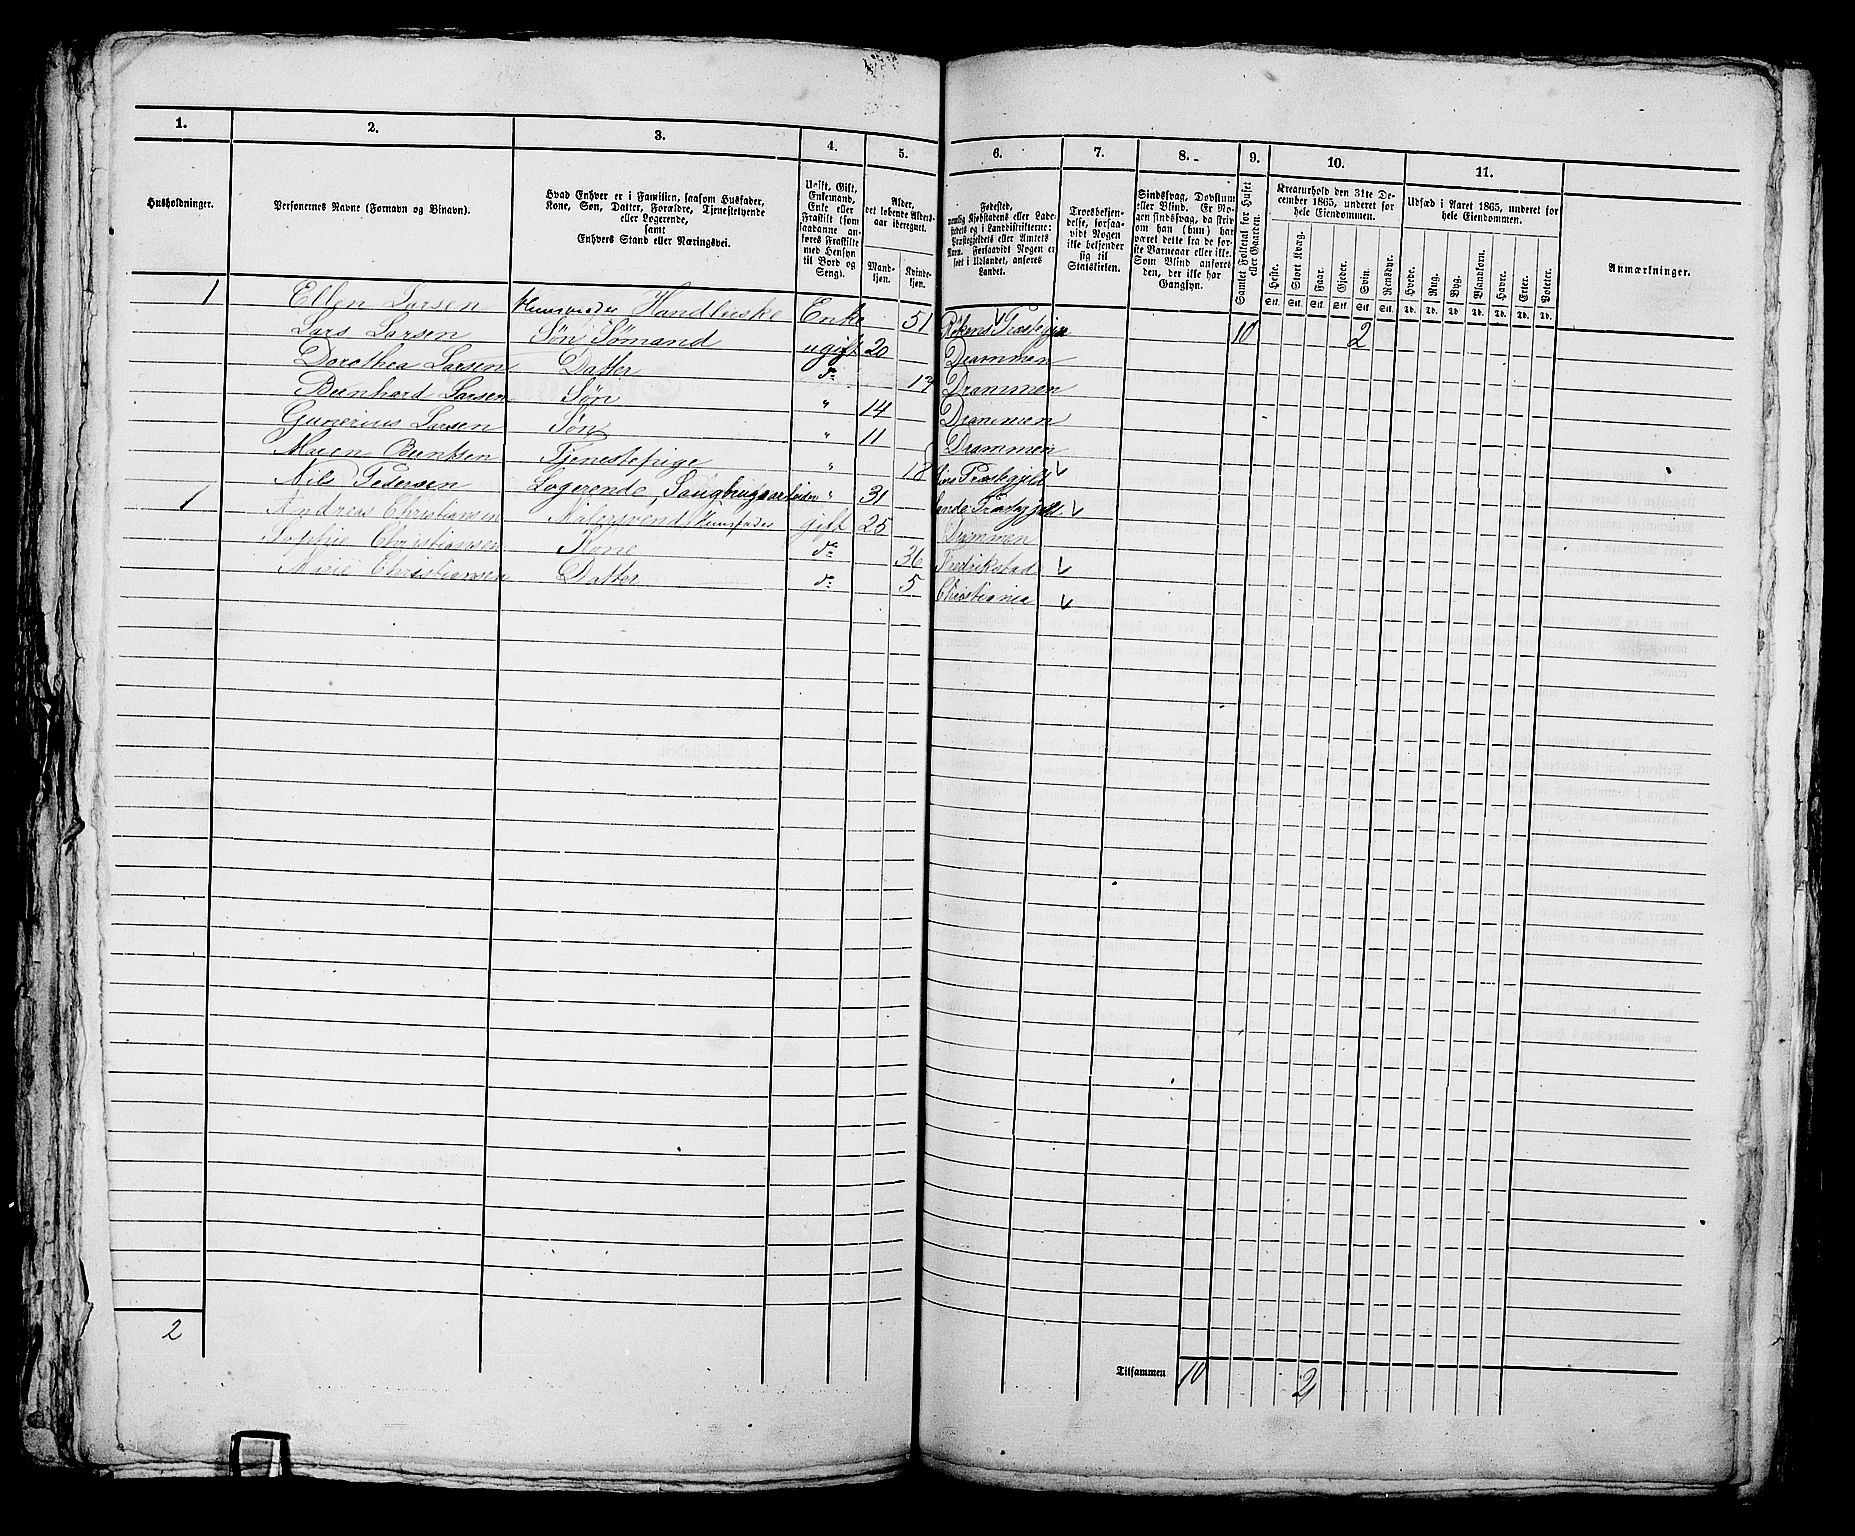 1. 2. 3. 4. 5. 6. 7. 8. 9. 10. 11.
Husholdninger.
Personernes Navne (Fornavn og Binavn).
Hvad Enhver er i Familien, saasom Husfader, Kone, Søn, Datter, Forældre, Tjenestetyende eller Logerende, samt Enhvers Stand eller Næringsvei.
Ugift, Gift, Enkemand, Enke eller Fraskilt (som saadanne anføres Fraskilte med Hensyn til Bord og Seng).
Alder, det løbende Alders-aar iberegnet.
Mand-kjøn. Kvinde-kjøn.
Fødested, nemlig Kjøbstadens eller Ladestedets og i Landdistrikterne: Præstegjeldets eller Amtets Navn. Forsaavidt Nogen er født i Udlandet, anføres Landet.
Troesbekjendelse, forsaavidt Nogen ikke bekjender sig til Statskirken.
Sindssvag, Døvstum eller Blind. Er Nogen sindssvag, da skrives om han (hun) har været dette fra de første Barneaar eller ikke. Som Blind anføres den, der ikke har Gangsyn.
Samlet Folketal for Huset eller Gaarden.
Kreaturhold den 31te December 1865, underet for hele Eiendommen.
Heste. Stort Kvæg. Faar. Gjeder. Svin. Rensdyr.
Stk. Stk. Stk. Stk. Stk. Stk.
Udsæd i Aaret 1865, underet for hele Eiendommen.
Hvede. Rug. Byg. Blandkorn. Havre. Erter. Poteter.
Td. Td. Td. Td. Td. Td. Td.
Anmærkninger.
1 Ellen Larsen Huusmoder Handlerske Enke 51 Røkens Præstegj 10 2
Lars Larsen Søn Sømand ugift 20 Drammen
Dorothea Larsen Datter do 17 Drammen
Bernhard Larsen Søn " 14 Drammen
Gunerius Larsen Søn " 11 Drammen
Maren Berntsen Tjenestepige " 18 Liers Præstegjeld
Nils Pedersen Logerende, Saugbrugsarbeider " 31 Sande Præstegjeld
1 Andreas Christiansen Malersvend Huusfader gift 25 Drammen
Sophie Christiansen Kone do 36 Fredrikstad
Marie Christiansen Datter do 5 Christiania
2
Tilsammen 10 2